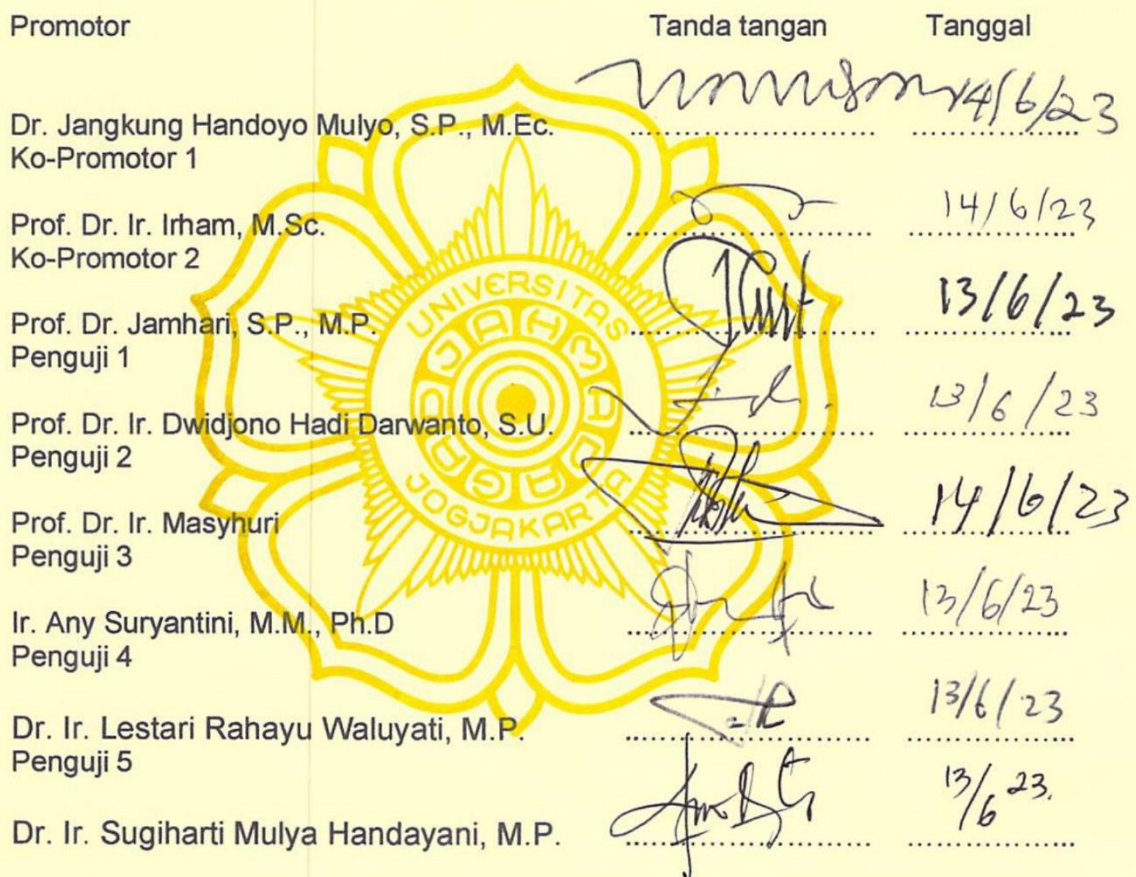 Promotor Tanda tangan Tanggal
Dr. Jangkung Handoyo Mulyo, S.P., M.Ec. .......................... 14/6/23
Ko-Promotor 1
Prof. Dr. Ir. Irham, M.Sc. .......................... 14/6/23
Ko-Promotor 2
Prof. Dr. Jamhari, S.P., M.P. .......................... 13/6/23
Penguji 1
Prof. Dr. Ir. Dwidjono Hadi Darwanto, S.U. .......................... 13/6/23
Penguji 2
Prof. Dr. Ir. Masyhuri .......................... 14/6/23
Penguji 3
Ir. Any Suryantini, M.M., Ph.D .......................... 13/6/23
Penguji 4
Dr. Ir. Lestari Rahayu Waluyati, M.P. .......................... 13/6/23
Penguji 5
Dr. Ir. Sugiharti Mulya Handayani, M.P. .......................... 13/6 23.
UNIVERSITAS
GADJAH MADA
JOGJAKARTA